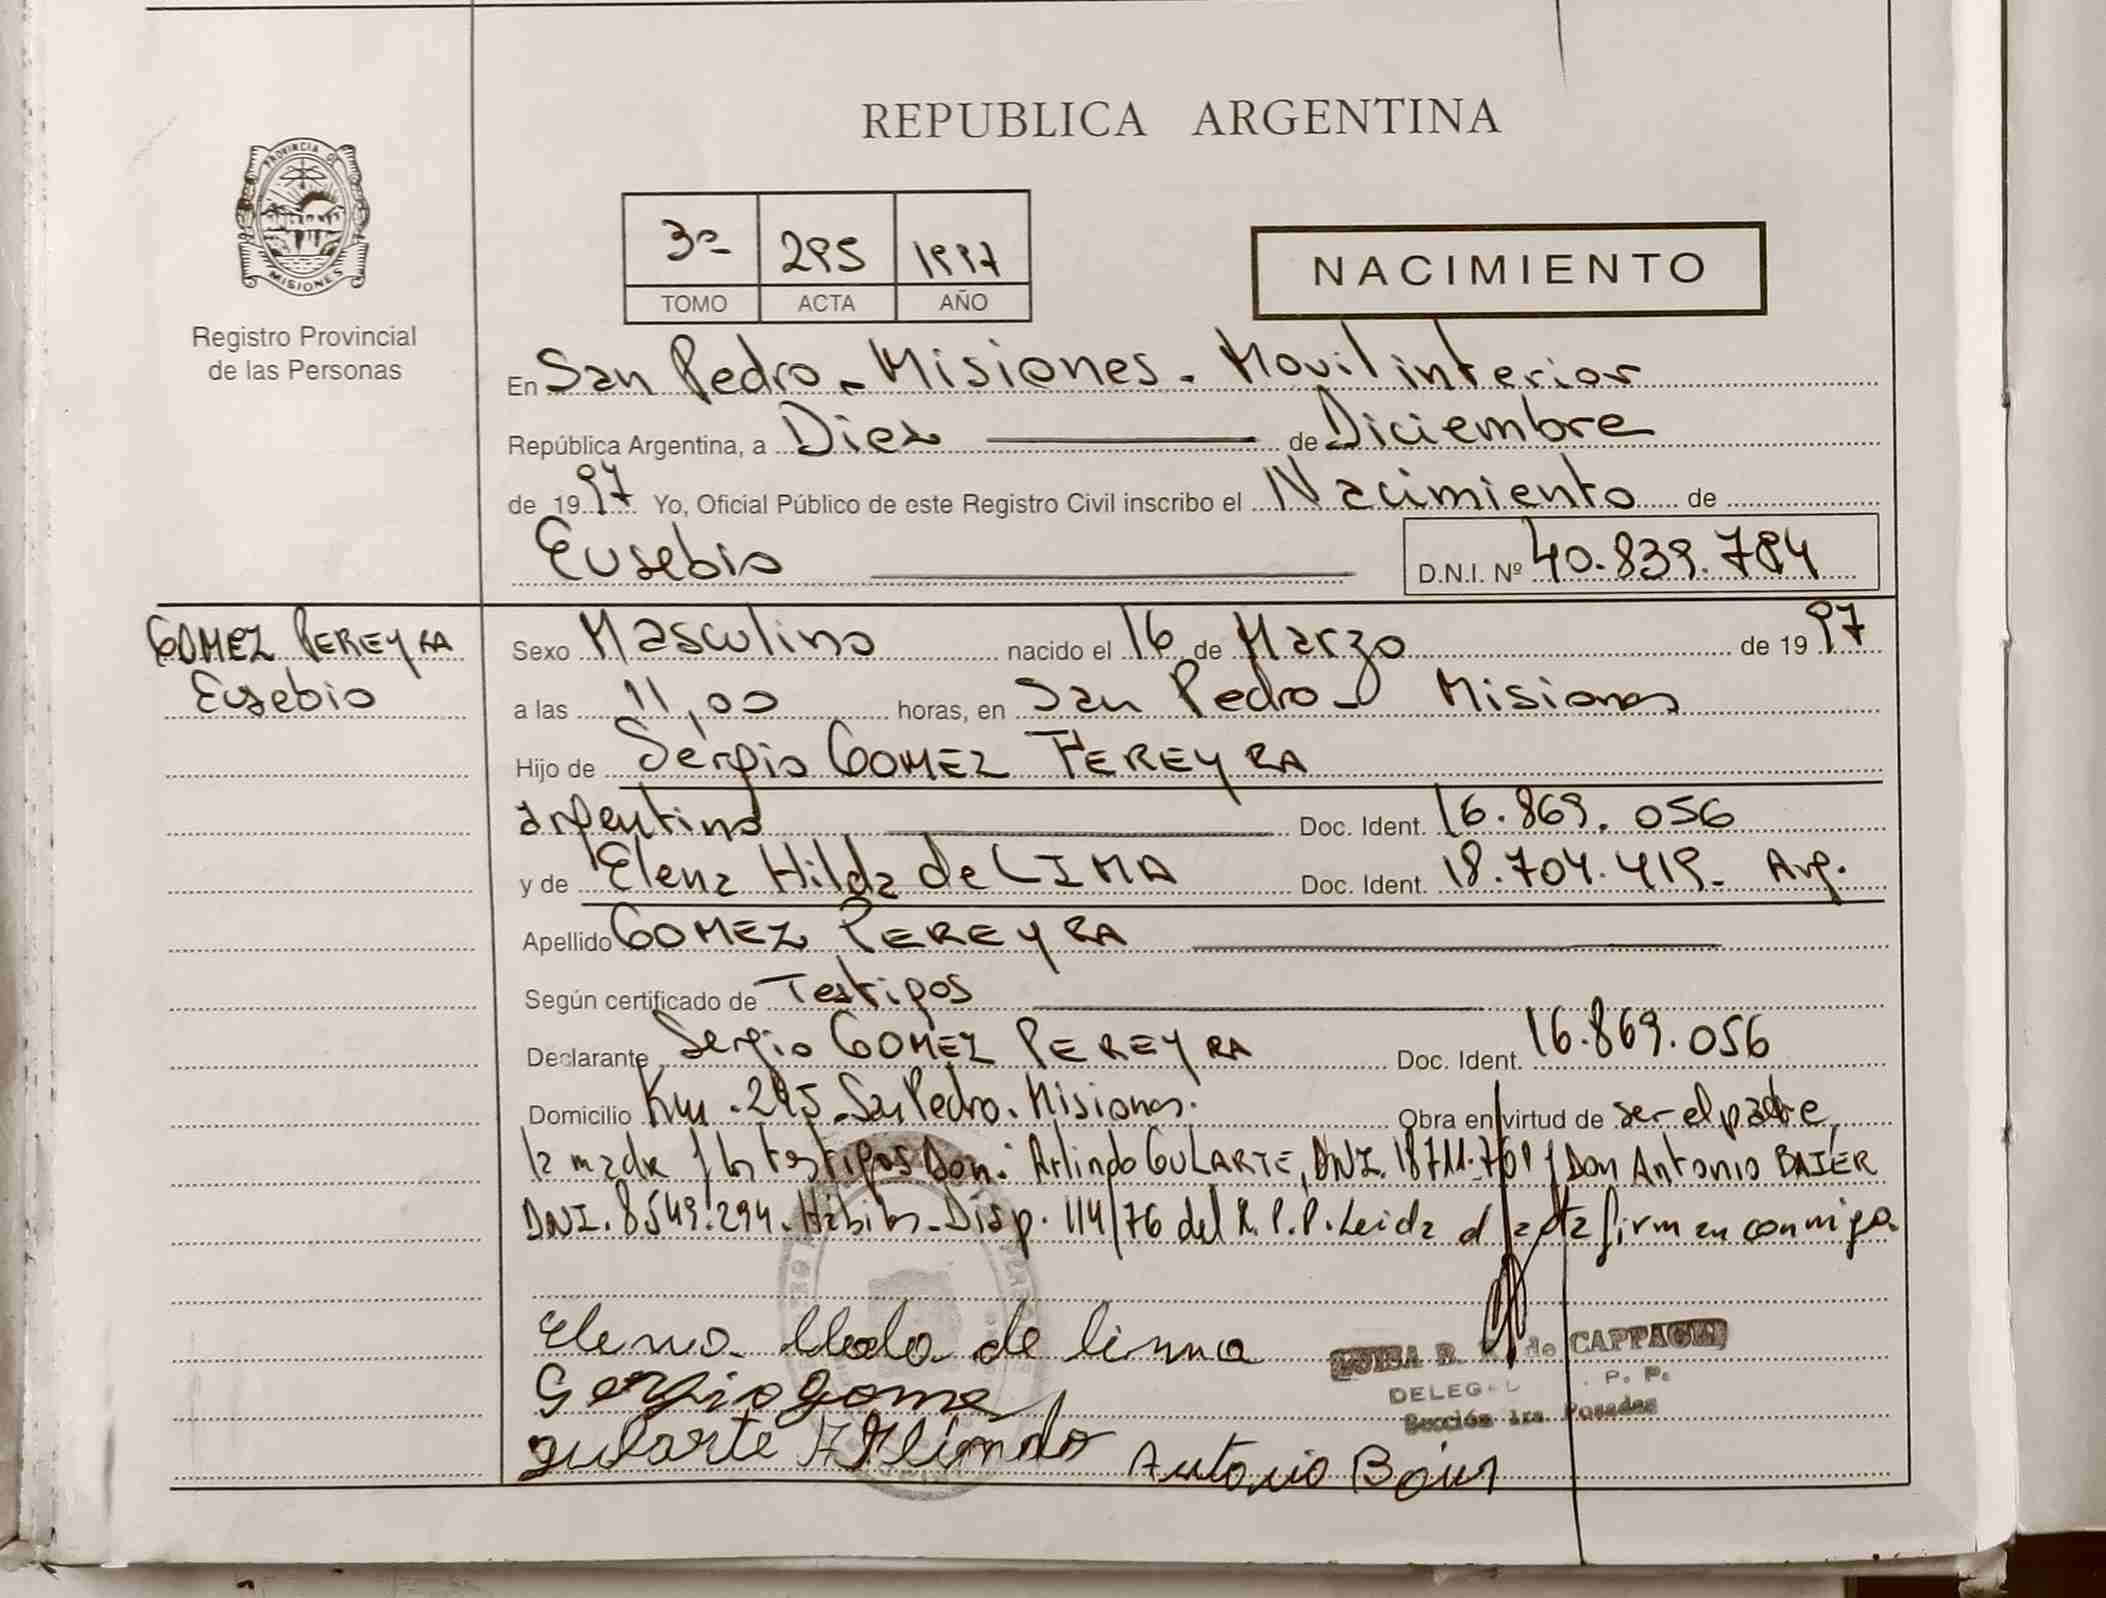 REPUBLICA ARGENTINA
PROVINCIA DE
MISIONES
Registro Provincial
de las Personas
3º 295 1997
TOMO ACTA AÑO
NACIMIENTO
En San Pedro - Misiones - Movil interior
República Argentina, a Diez de Diciembre
de 1997 Yo, Oficial Público de este Registro Civil inscribo el Nacimiento de
Eusebio D.N.I. Nº 40.839.784
GOMEZ PEREYRA
Eusebio
Sexo Masculino nacido el 16 de Marzo de 1997
a las 11,00 horas, en San Pedro - Misiones
Hijo de Sergio GOMEZ PEREYRA
argentino Doc. Ident. 16.869.056
y de Elena Hilda de LIMA Doc. Ident. 18.704.419- Arg.
Apellido GOMEZ PEREYRA
Según certificado de Testigos
Declarante Sergio GOMEZ PEREYRA Doc. Ident. 16.869.056
Domicilio Km. 295 - San Pedro - Misiones. Obra en virtud de ser el padre,
la madre y los testigos Don: Arlindo GULARTE, DNI. 18711.701 y Don Antonio BAIER
DNI. 8549.294. Hábiles - Disp. 114/76 del R.P.P. Leida el acta firman conmigo.
Elena de lima
Sergio gome
gularte Arlindo Antonio Baier
de CAPPAGLI
P. P.
Sección 1ra Posadas